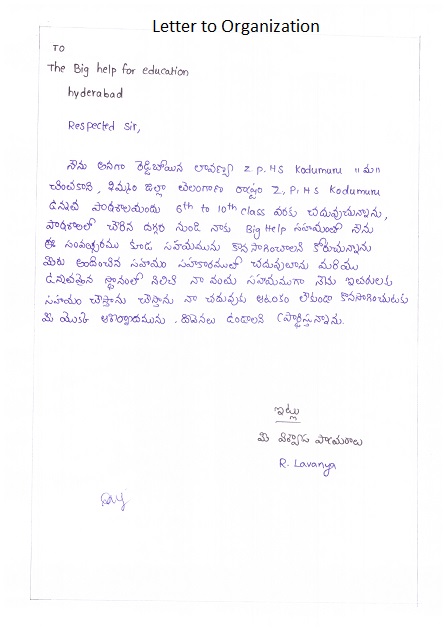 Letter to Organization
TO
The Big help for education
hyderabad
Respected Sir,
నేను అనగా రెడ్డిబోయిన లావణ్య Z P. H S Kodumuru "మ"
చింతకాని, ఖమ్మం జిల్లా తెలంగాణ రాష్ట్రం Z, P, H S Kodumuru
ఉన్నత పాఠశాలయందు 6th to 10th class వరకు చదువుచున్నాను,
పాఠశాలలో చేరిన దగ్గర నుండి నాకు Big Help సహాయంతో నేను
ఈ సంవత్సరము కూడ సహాయమును కొనసాగించాలని కోరుచున్నాను
మీరు అందించిన సహాయ సహకారములతో చదువుతాను మరియు
ఉన్నతమైన స్థానంలో నిలిచి నా వంతు సహాయముగా నేను ఇతరులకు
సహాయం చేస్తాను చేస్తాను నా చదువుకు ఆటంకం లేకుండా కొనసాగించుటకు
మీ యొక్క ఆశీర్వాదమును. దీవెనలు ఉండాలని ప్రార్థిస్తున్నాను.
ఇట్లు
మీ విశ్వాస పాత్రురాలు
R. Lavanya